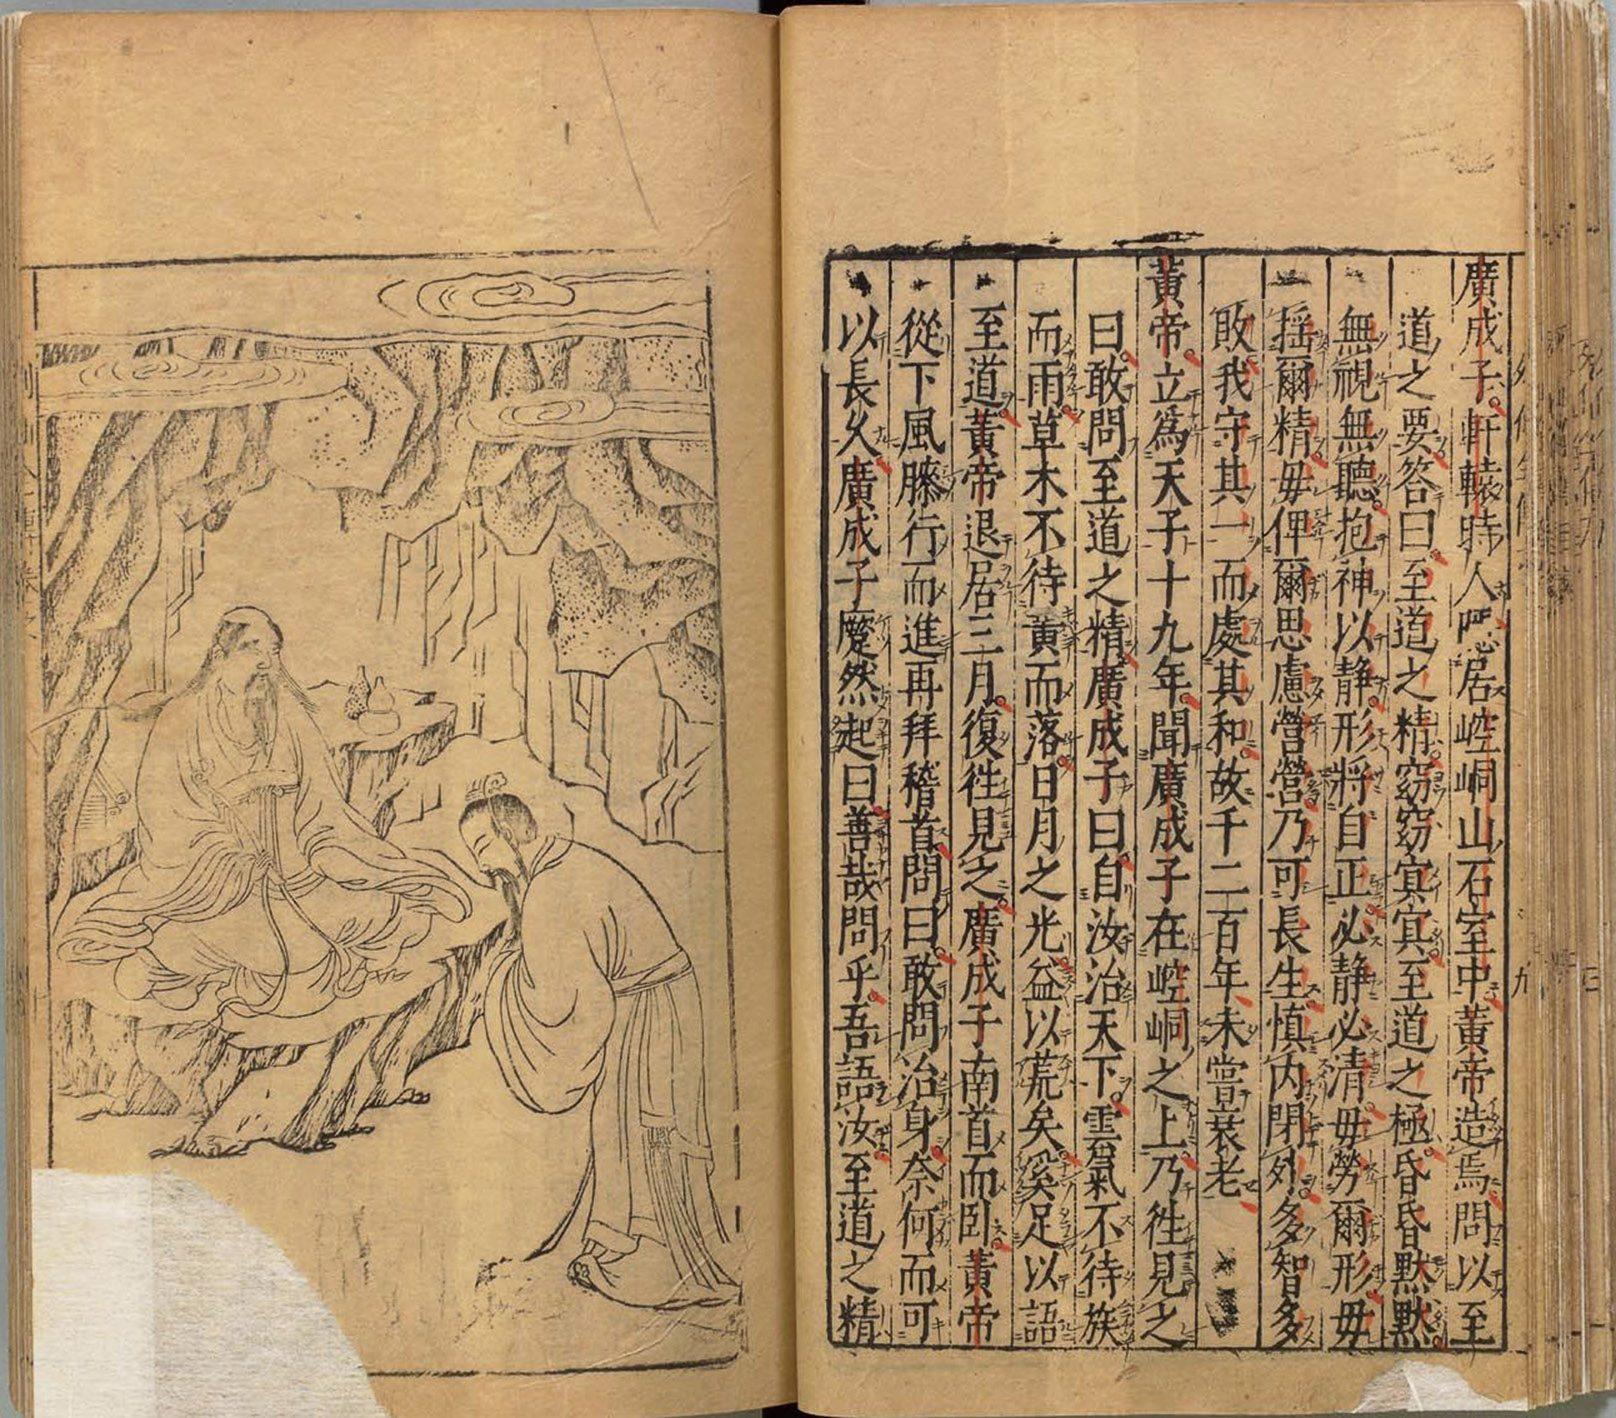 廣成子軒轅時人隱居崆峒山石室中黃帝造焉問以至
道之要答曰至道之精窈窈冥冥至道之極昏昏默默
無視無聽抱神以静形將自正必静必清毋勞爾形毋
揺爾精毋俾爾思慮營營乃可長生慎内閉外多智多
敗我守其一而處其和故千二百年未嘗衰老
黃帝立爲天子十九年聞廣成子在崆峒之上乃徃見之
曰敢問至道之精廣成子曰自汝治天下雲氣不待族
而雨草木不待黃而落日月之光益以荒矣奚足以語
至道黃帝退居三月復徃見之廣成子南首而卧黃帝
從下風膝行而進再拜稽首問曰敢問治身奈何而可
以長久廣成子蹷然起曰善哉問乎吾語汝至道之精